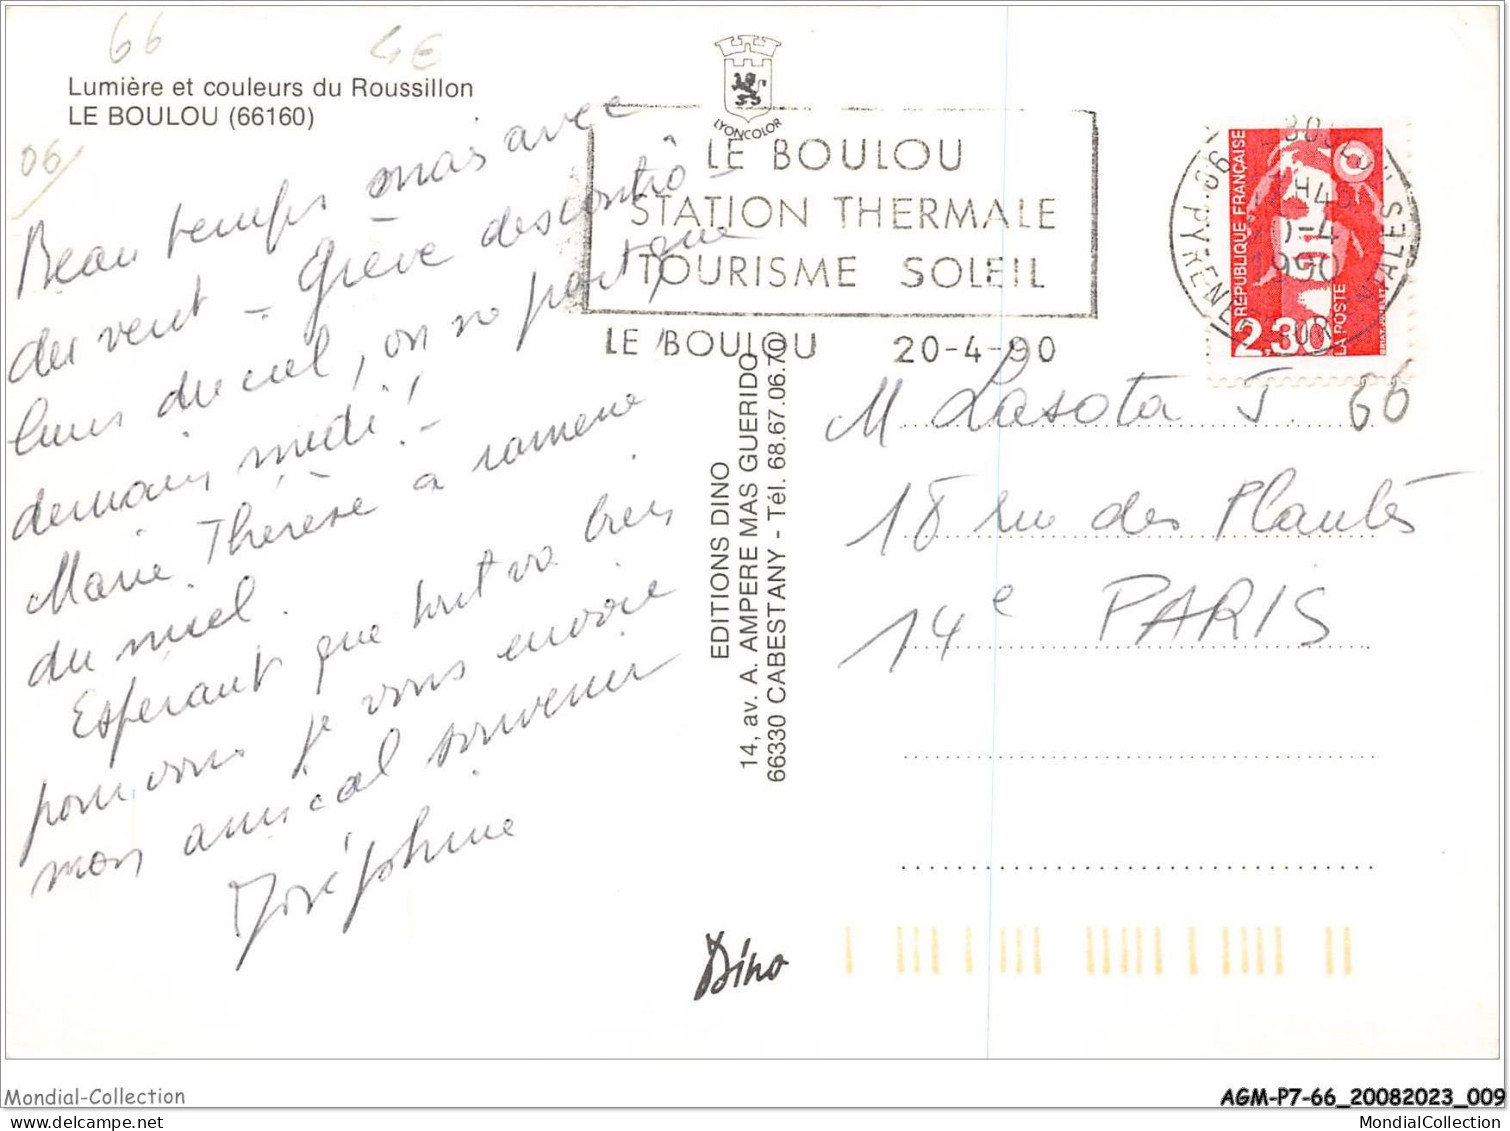 66
Lumière et couleurs du Roussillon
LE BOULOU (66160)
06
Beau temps mais avec
du vent - Grève des contrô-
leurs du ciel, on ne part que
demain midi! -
Marie-Thérèse a ramené
du miel.
Espérant que tout va bien
pour vous je vous envoie
mon amical souvenir
Joséphine
LYONCOLOR
LE BOULOU
STATION THERMALE
TOURISME SOLEIL
LE BOULOU 20-4-90
EDITIONS DINO
14, av. A. AMPERE MAS GUERIDO
66330 CABESTANY - Tél. 68.67.06.70
Dino
66 PYRENEES ORIENTALES
1990
REPUBLIQUE FRANÇAISE
LA POSTE
2,30
M Lasota J. 66
18 rue des Plantes
14e PARIS
Mondial-Collection
AGM-P7-66_20082023_009
MondialCollection